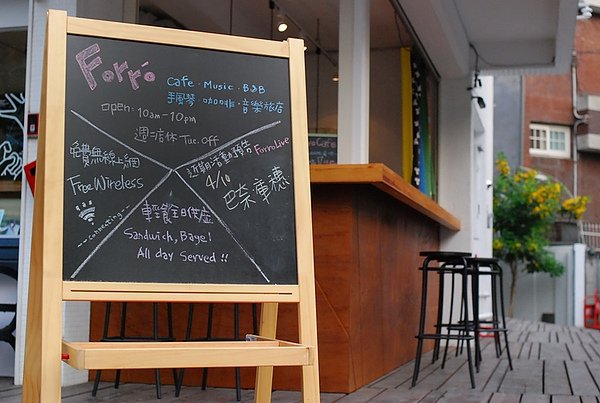 Forró
Cafe · Music · B&B
手風琴 · 咖啡 · 音樂旅店
open · 10am - 10pm
週二店休 Tue. Off
免費無線上網
Free Wireless
--connecting--
近期活動預告
Forro Live
4/10
巴奈庫穗
輕食全日供應
Sandwich, Bagel
All day Served !!